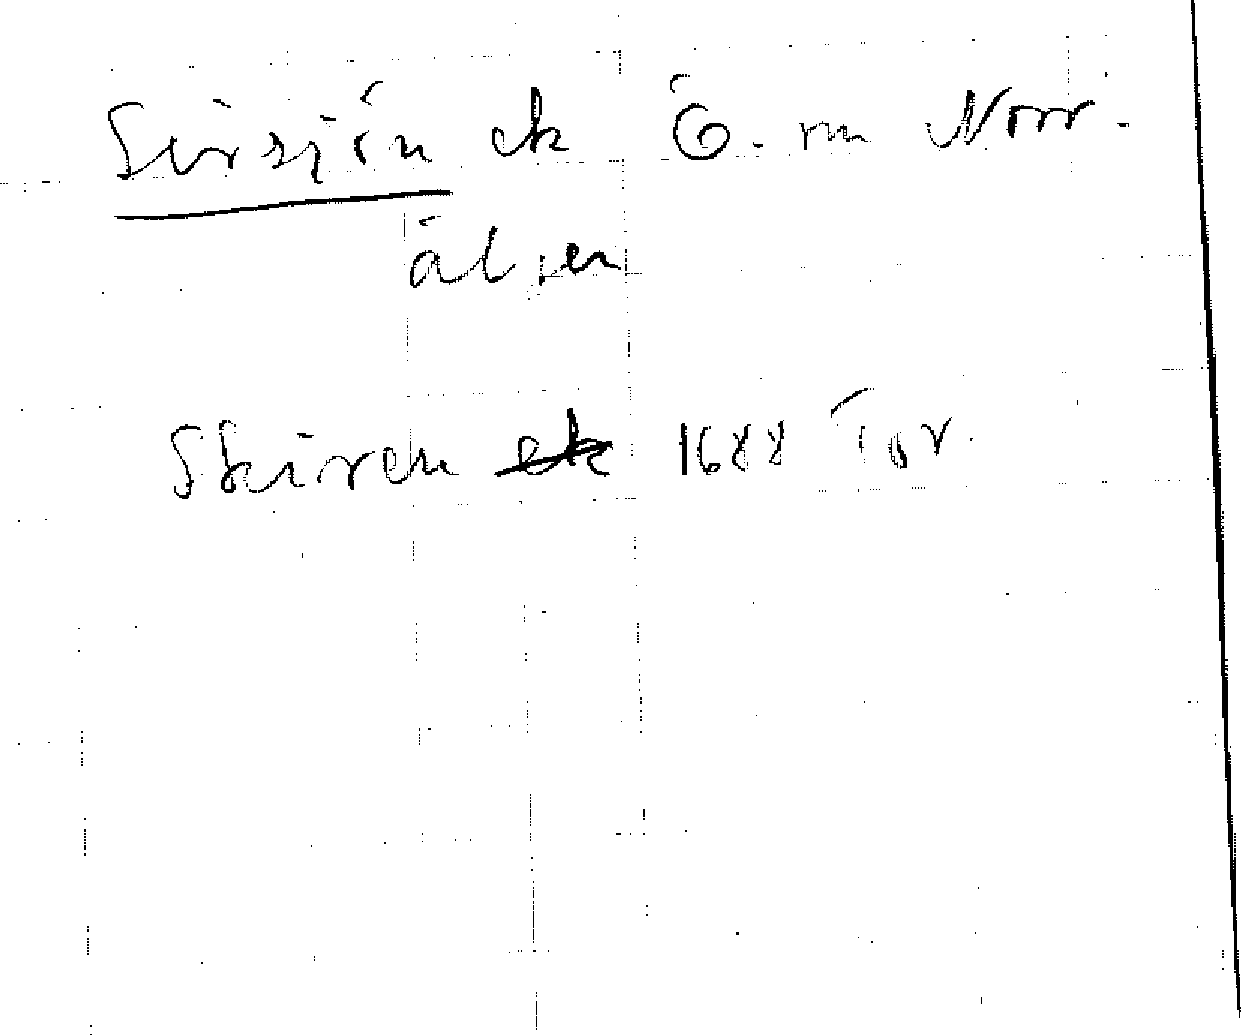 Sirsjön ek Ö. om Norr.
älven
Skiren 1688 Tor.